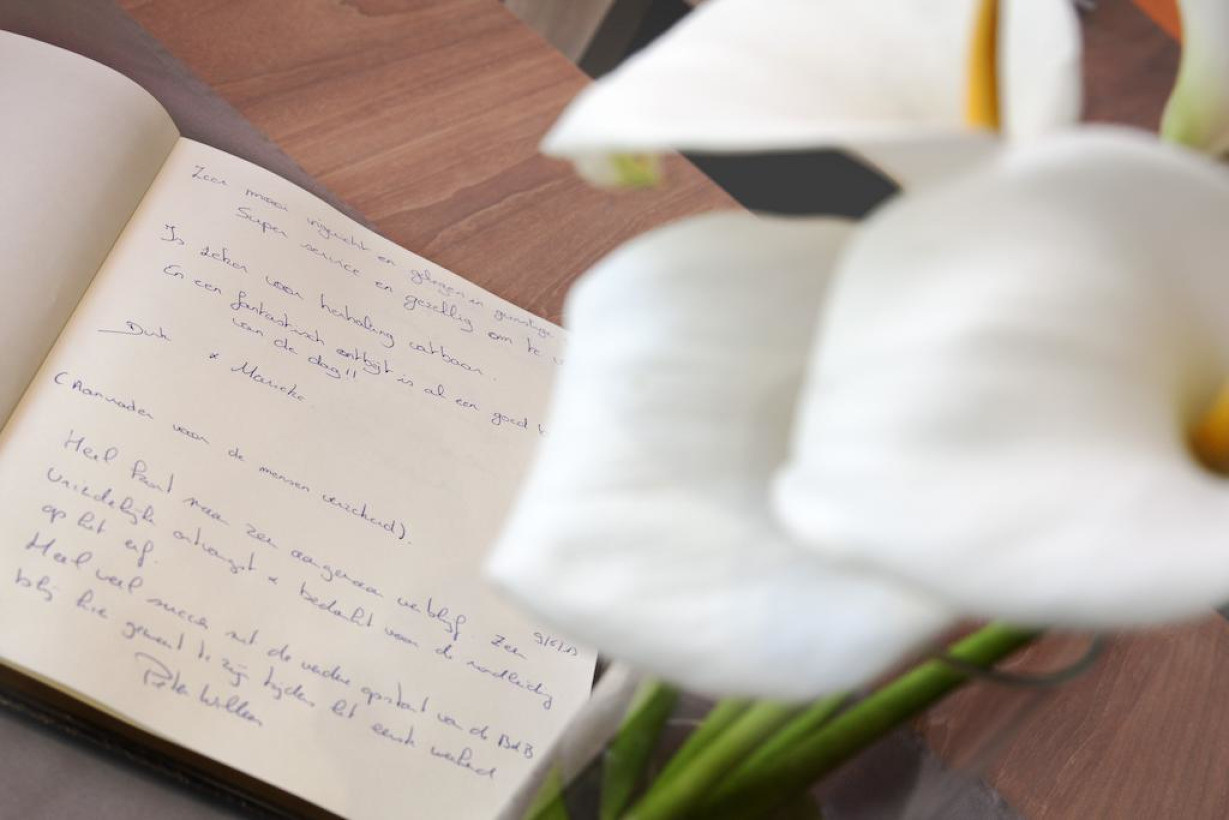 Zeer mooi ingericht en gelegen in gunstige
Super service en gezellig om te
Is zeker voor herhaling vatbaar.
En een fantastisch ontbijt is al een goed
van de dag!!
Dirk & Marieke.
(Aanrader voor de mensen verzekerd).
9/6/13
Heel kort maar zeer aangenaam verblijf. Zeer
vriendelijk ontvangst & bedankt voor de rondleiding
op het erf.
Heel veel succes met de verdere opstart van de B&B
blij hier geweest te zijn tijdens het eerste weekend
Willem